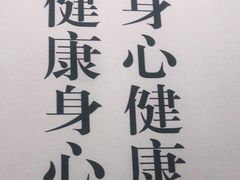 身心健康
健康身心